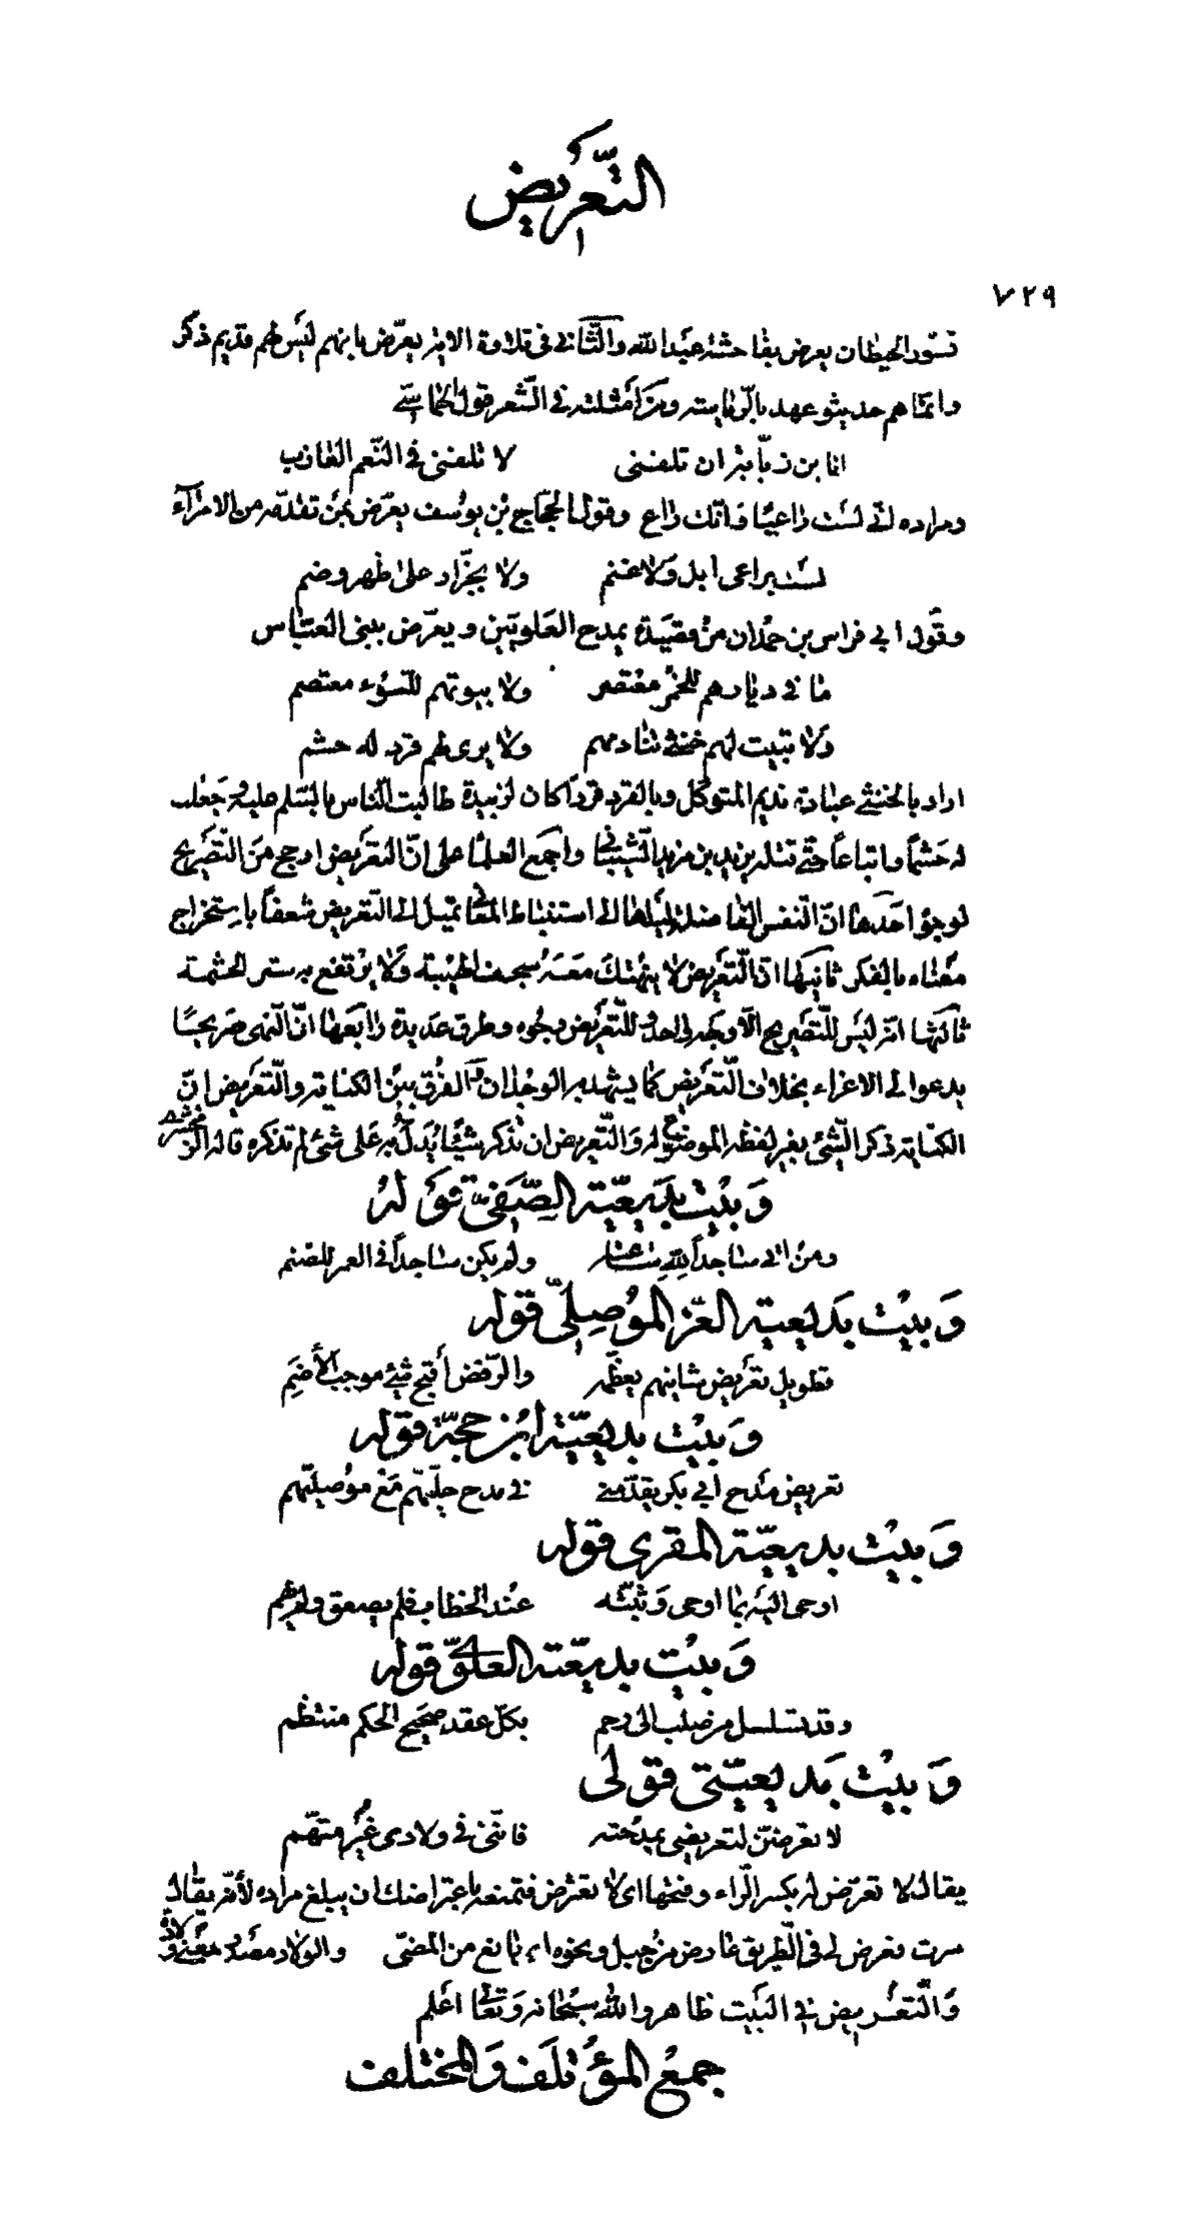 التعريض
٧٢٩
تسور الحيطان يعرض بفاحشة عبد الله والثاني في تلاوة الاية يعرّض بانهم ليس لهم قديم ذكر
وانما هم حديثو عهد بالرياسة ومن أمثلته في الشعر قول الحماسيّ
انا بن زيّابة ان تلقنى لا تلقنى فى النّعم العازب
ومراده انى لست راعيًا فانك راع وقول الحجّاج بن يوسف يعرّض بمن تقدّمه من الامراء
لست براعى ابل ولا غنم ولا بجزّار على ظهر وضم
وقول ابي فراس بن حمدان من قصيدة يمدح العلويّين ويعرّض ببنى العبّاس
ما فى ديارهم للخمر معتصر ولا بيوتهم للسّوء معتصم
ولا تبيت لهم خنثى تنادمهم ولا يرى لهم قرد له حشم
اراد بالخنثى عبادة نديم المتوكّل وبالقرد قردًا كان لزبيدة طالبت النّاس بالسّلام عليه وجعلت
له حشمًا واتباعًا حتّى قتله يزيد بن مزيد الشّيبانى واجمع العلماء على انّ التعريض ارجح من التّصريح
لوجوه احدها انّ النّفس الفاضلة لميلها الى استنباط المعانى تميل الى التّعريض شعفًا باستخراج
معناه بالفكر ثانيها انّ التّعريض لا ينهتك معه سجف الهيبة ولا يرتفع به ستر الحشمة
ثالثها انّه ليس للتّصريح الّا وجه واحد وللتّعريض وجوه وطرق عديدة رابعها انّ النّهى صريحًا
يدعو الى الاغراء بخلاف التّعريض كما يشهد به الوجدان والفرق بين الكناية والتّعريض انّ
الكناية ذكر الشّئ بغير لفظه الموضوع له والتّعريض ان تذكر شيئًا يدلّ به على شئ لم تذكره قاله الزمخشرى
وبيت بديعيّة الصّفىّ قوله
ومن اتى ساجدًا لله ساعته ولم يكن ساجدًا فى العمر للصّنم
وبيت بديعية العزّ الموصلىّ قوله
تطويل تعريض شانيهم يعظّمهم والرّفض أقبح شئ موجب الأضم
وبيت بديعيّة ابن حجّة قوله
تعريض مدح ابى بكر يقدّمنى فى مدح حلّيّهم مع موصليّهم
وبيت بديعيّة المقرى قوله
اوحى اليه بما اوحى وثبّته عند الخطاب فلم يصعق ولم يهم
وبيت بديعيّة العلوىّ قوله
وقد تسلسل من صلب الى رحم بكلّ عقد صحيح الحكم منتظم
وبيت بديعيّتى قولى
لا تعرضنّ لتعريضى بمدحته فانّنى فى ولادى غير متّهم
يقال لا تعرّض له بكسر الرّاء وفتحها اى لا تعترض فتمنعه باعتراضك ان يبلغ مراده لأنّه يقال
سرت فعرض لى فى الطّريق عارض من جبل ونحوه اى مانع من المضىّ والولاد مصدر بمعنى ولادة
والتّعريض فى البيت ظاهر والله سبحانه وتعالى اعلم
جمع المؤتلف والمختلف